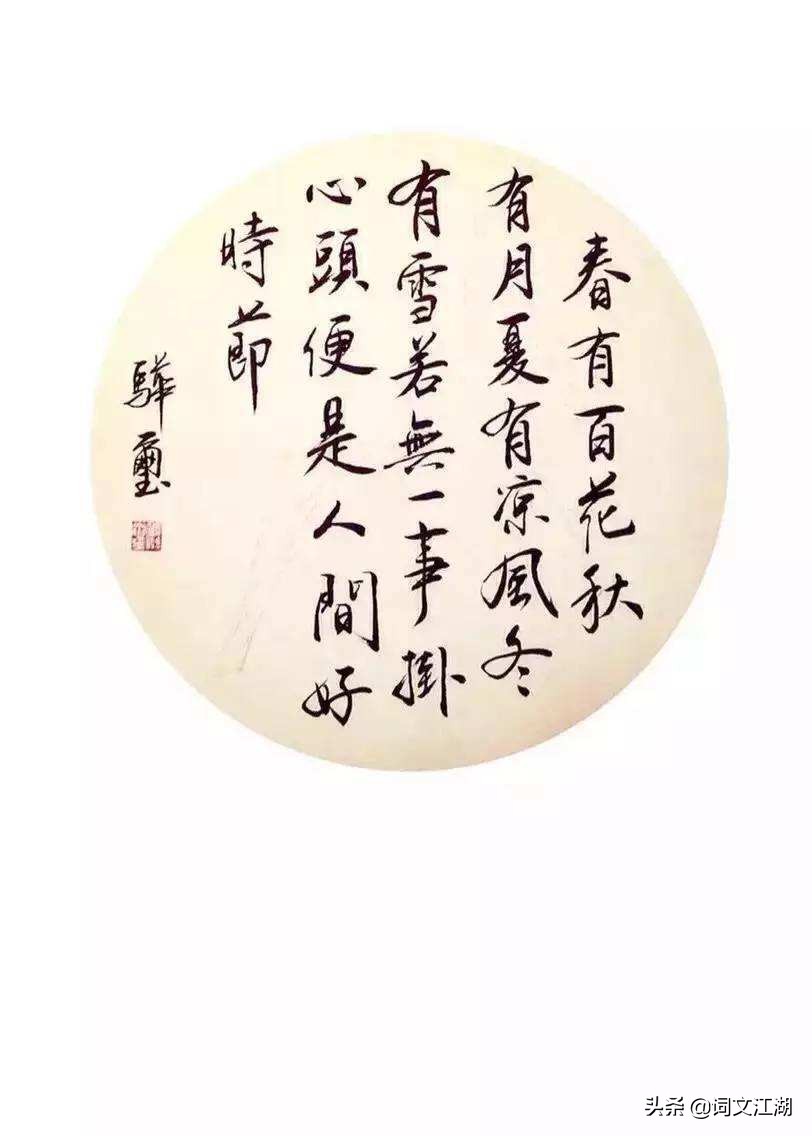 春有百花秋
有月夏有凉風冬
有雪若無一事掛
心頭便是人間好
時節
驊璽
头条 @词文江湖